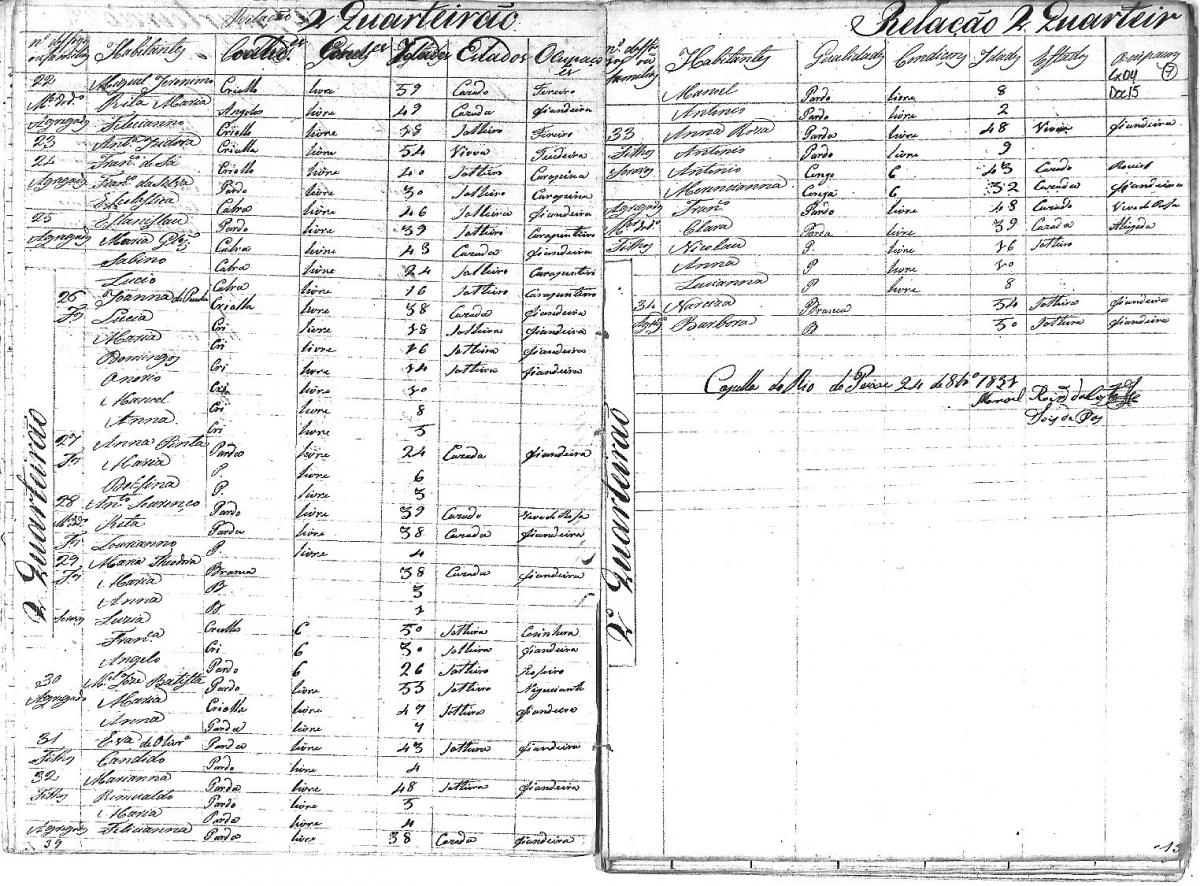 Relação 2 Quarteirão
Habitantes Idades Estados Ocupaçoes
22 Miguel Jeronimo Criollo livre 59 Cazado Fereiro
Rita Maria Angola livre 49 Cazada fiandeira
Agregado Feliciano Criollo livre 18 Solteiro Fereiro
23 Antª Izidora Criolla livre 54 Viuva
24 Franº de Sá Criollo livre 40 Solteiro Carapina
Agregado Franº da Silva Pardo livre 30 Solteiro Carapina
Escolastica Cabra livre 46 Solteira fiandeira
25 Estanislau Pardo livre 39 Solteiro Carapinteiro
Agregado Maria Cabra livre 43 Cazada fiandeira
Sabino Cabra livre 24 Solteiro Carapinteiro
Lucio Cabra livre 16 Solteiro Carapinteiro
26 Joanna de Paula Criolla livre 38 Cazada fiandeira
Fº Lucia Cri livre 18 Solteira fiandeira
Maria Cri livre 16 Solteira fiandeira
Domingos Cri livre 14 Solteira fiandeira
Onorio Cri livre 10
Manoel Cri livre 8
Anna Cri livre 5
27 Anna Pinta Parda livre 24 Cazada fiandeira
Fº Maria P. livre 6
Delfina P. livre 3
28 Antº Lourenço Pardo livre 39 Cazado Vive de Rosa
Rita Parda livre 38 Cazada fiandeira
Fº Lourianno P. livre 4
29 Maria Theodora Branca 38 Cazada fiandeira
Fº Maria B. 3
Anna B. 1
Luzia Criolla C 50 Solteira Cosinheira
Franca Cri C 30 Solteira fiandeira
Angelo Pardo C 26 Solteiro Roseiro
30 Mel Jose Batista Pardo livre 33 Solteiro Negociante
Agregado Maria Criolla livre 47 Solteira fiandeira
Anna Parda livre 7
31 Eva de Olivrª Parda livre 43 Solteira fiandeira
Filho Candido Pardo livre 4
32 Marianna Parda livre 48 Solteira fiandeira
Filhos Rimualdo Pardo livre 5
Maria Parda livre 4
Agregada Felicianna Parda livre 38 Cazada fiandeira
39
2 Quarteirão
Relação 2 Quarteir
Habitantes Qualidades Condiçoes Idades Estados Ocupaçoes
Cx04 7
Doc15
Manoel Pardo livre 8
Antonio Pardo livre 2
33 Anna Roza Parda livre 48 Viuva fiandeira
Filhos Antonio Pardo livre 9
Antonio Congo C 43 Cazado
Conga C 32 Cazada fiandeira
Agregado Franº Pardo livre 48 Cazado Vive de Rosa
Clara Parda livre 39 Cazada Aleijada
Filhos Nicolau P. livre 16 Solteiro
Anna P livre 10
Lucianna P livre 8
34 Narciza Branca 54 Solteira fiandeira
Barbora B 50 Solteira fiandeira
Capella do Rio do Peixe 24 de 8brº 1831
Manoel
Juis de Paz
2º Quarteirão